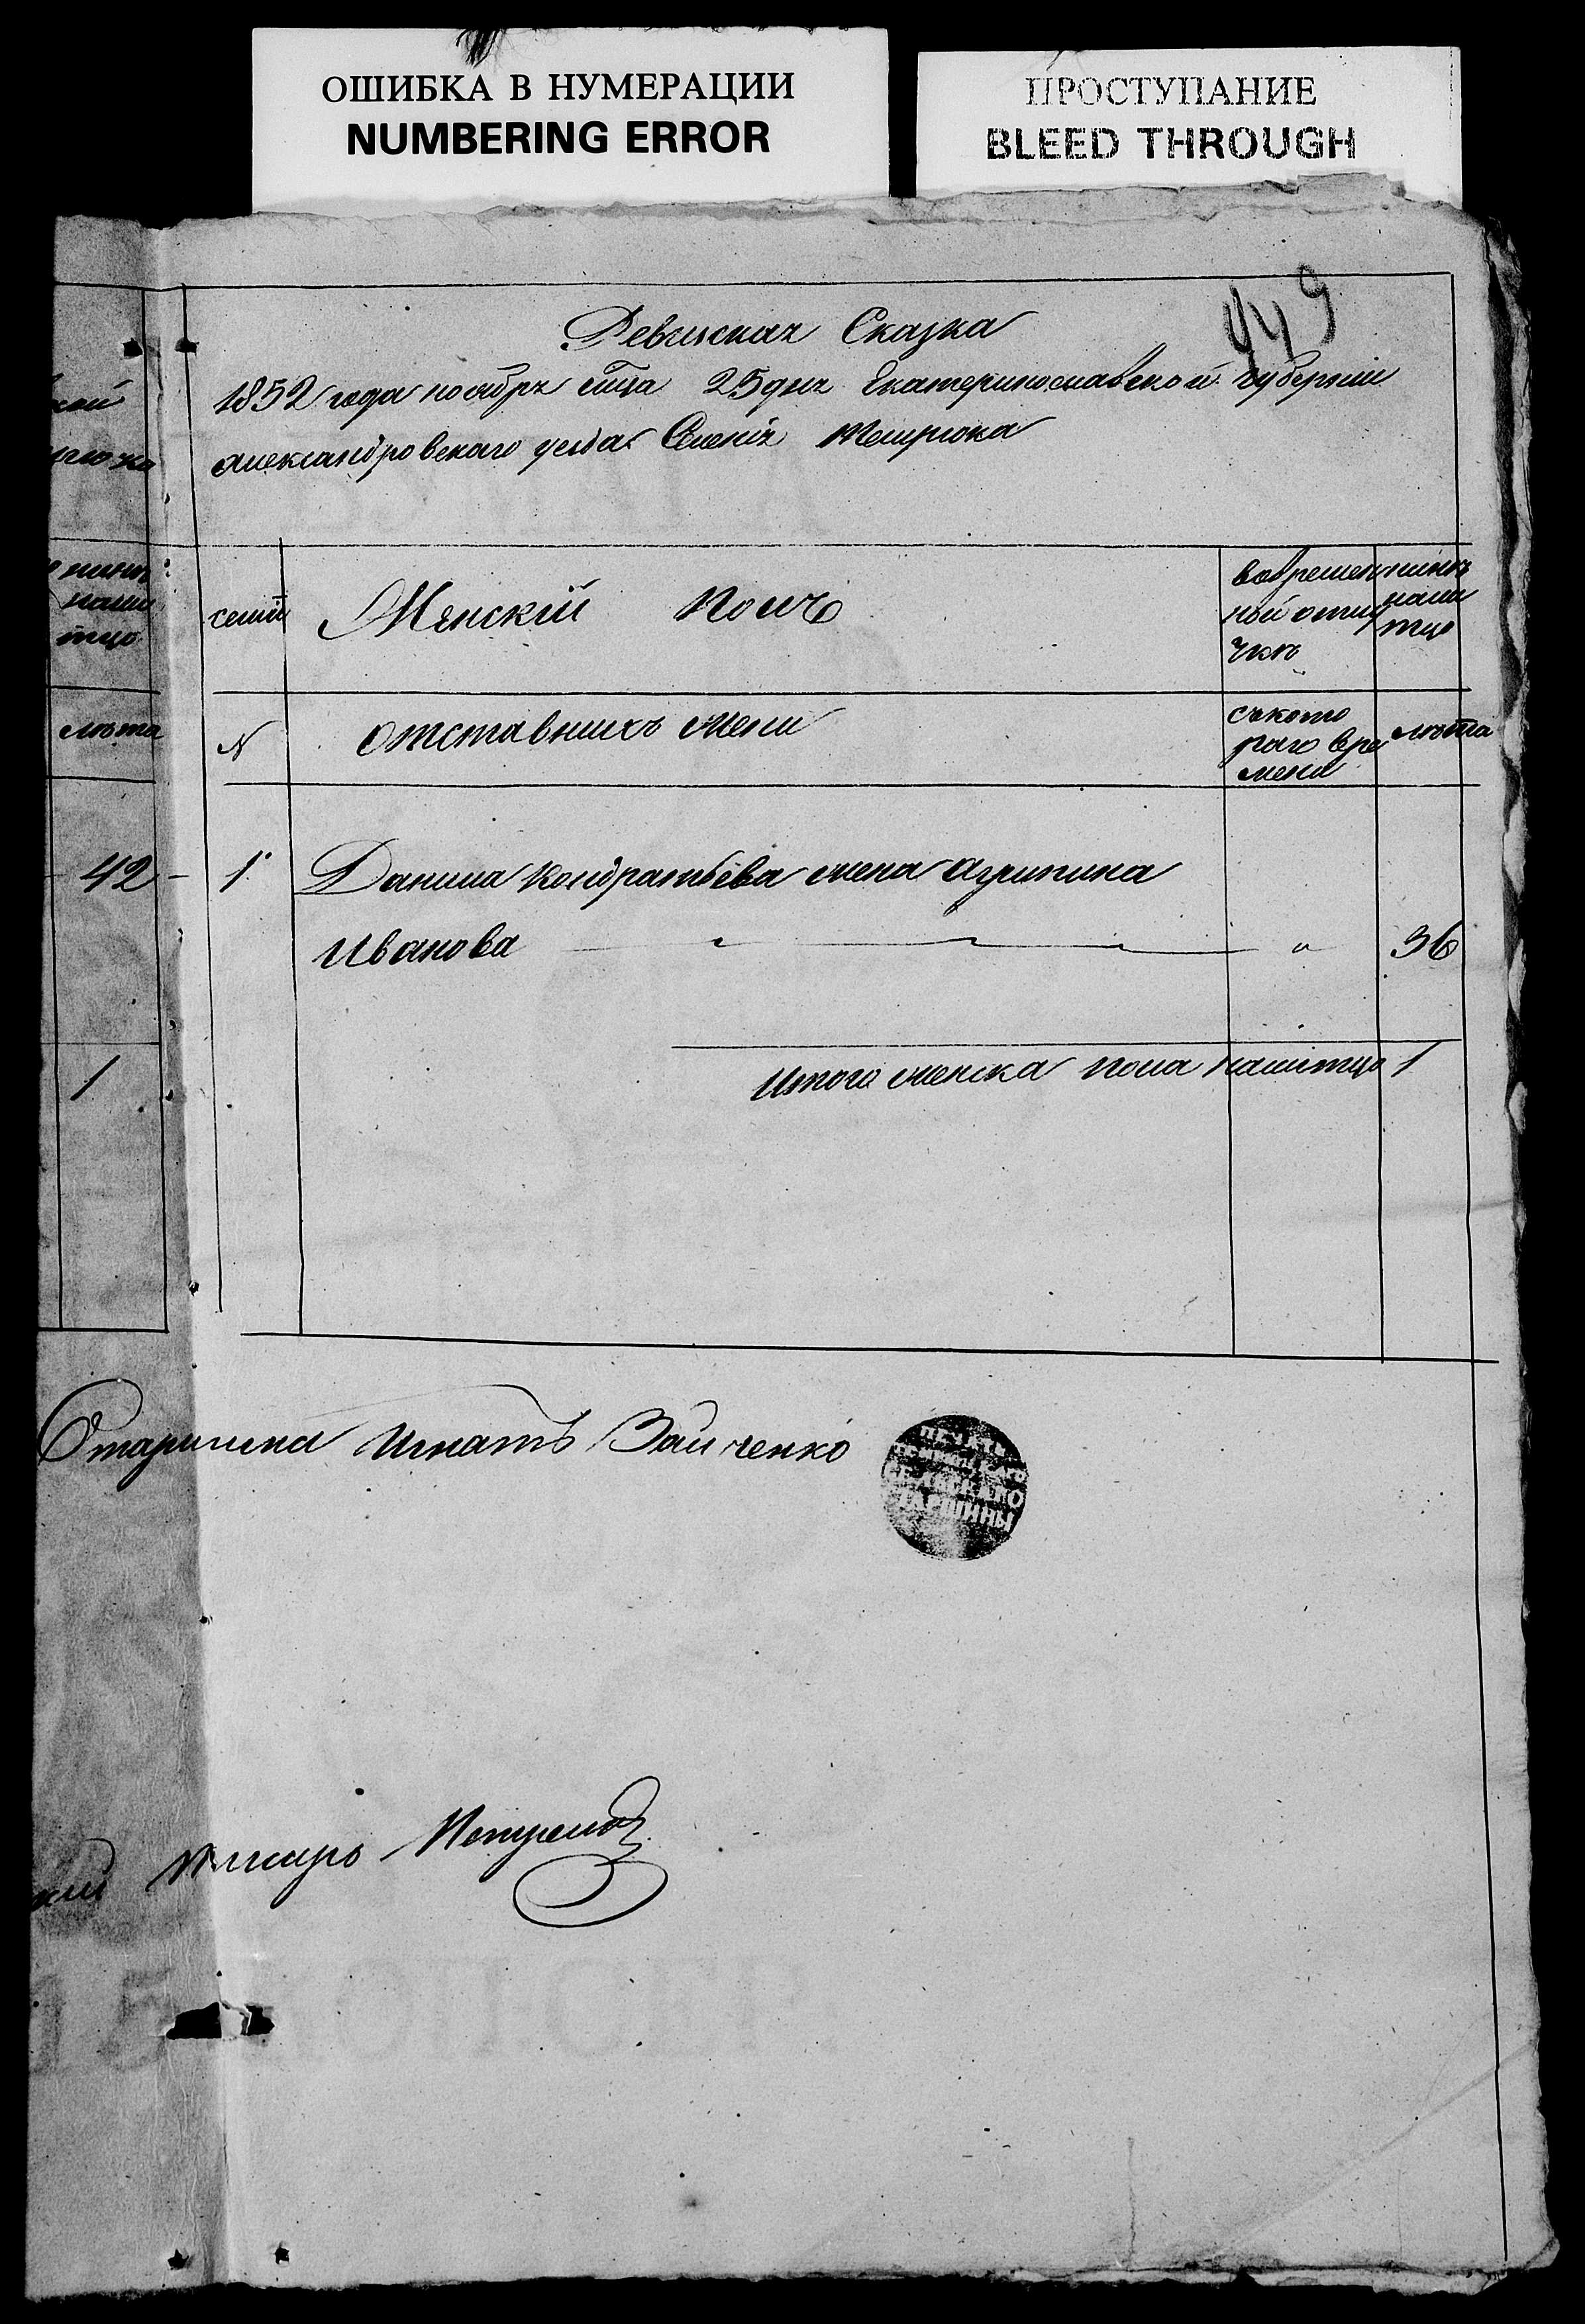 ОШИБКА В НУМЕРАЦИИ
NUMBERING ERROR
ПРОСТУПАНИЕ
BLEED THROUGH
Ревиская Сказка
1852 года ноября мца 25 дня Екатеринославской губернiи
Александровскаго уезда Селенiя Темрюка
семiи
Женскiй Полъ
вовремен
ной отлу
чкѣ
нинѣ
нали
тцо
N
отставныхъ жены
съкото
раго вре
мени
лѣта
42
1
Данила Кондратьева жена Агрипина
Иванова
36
Итого женска пола налитцо 1
1
Старшина Игнатъ Заиченко
СТАРШИНЫ
Писарь
15